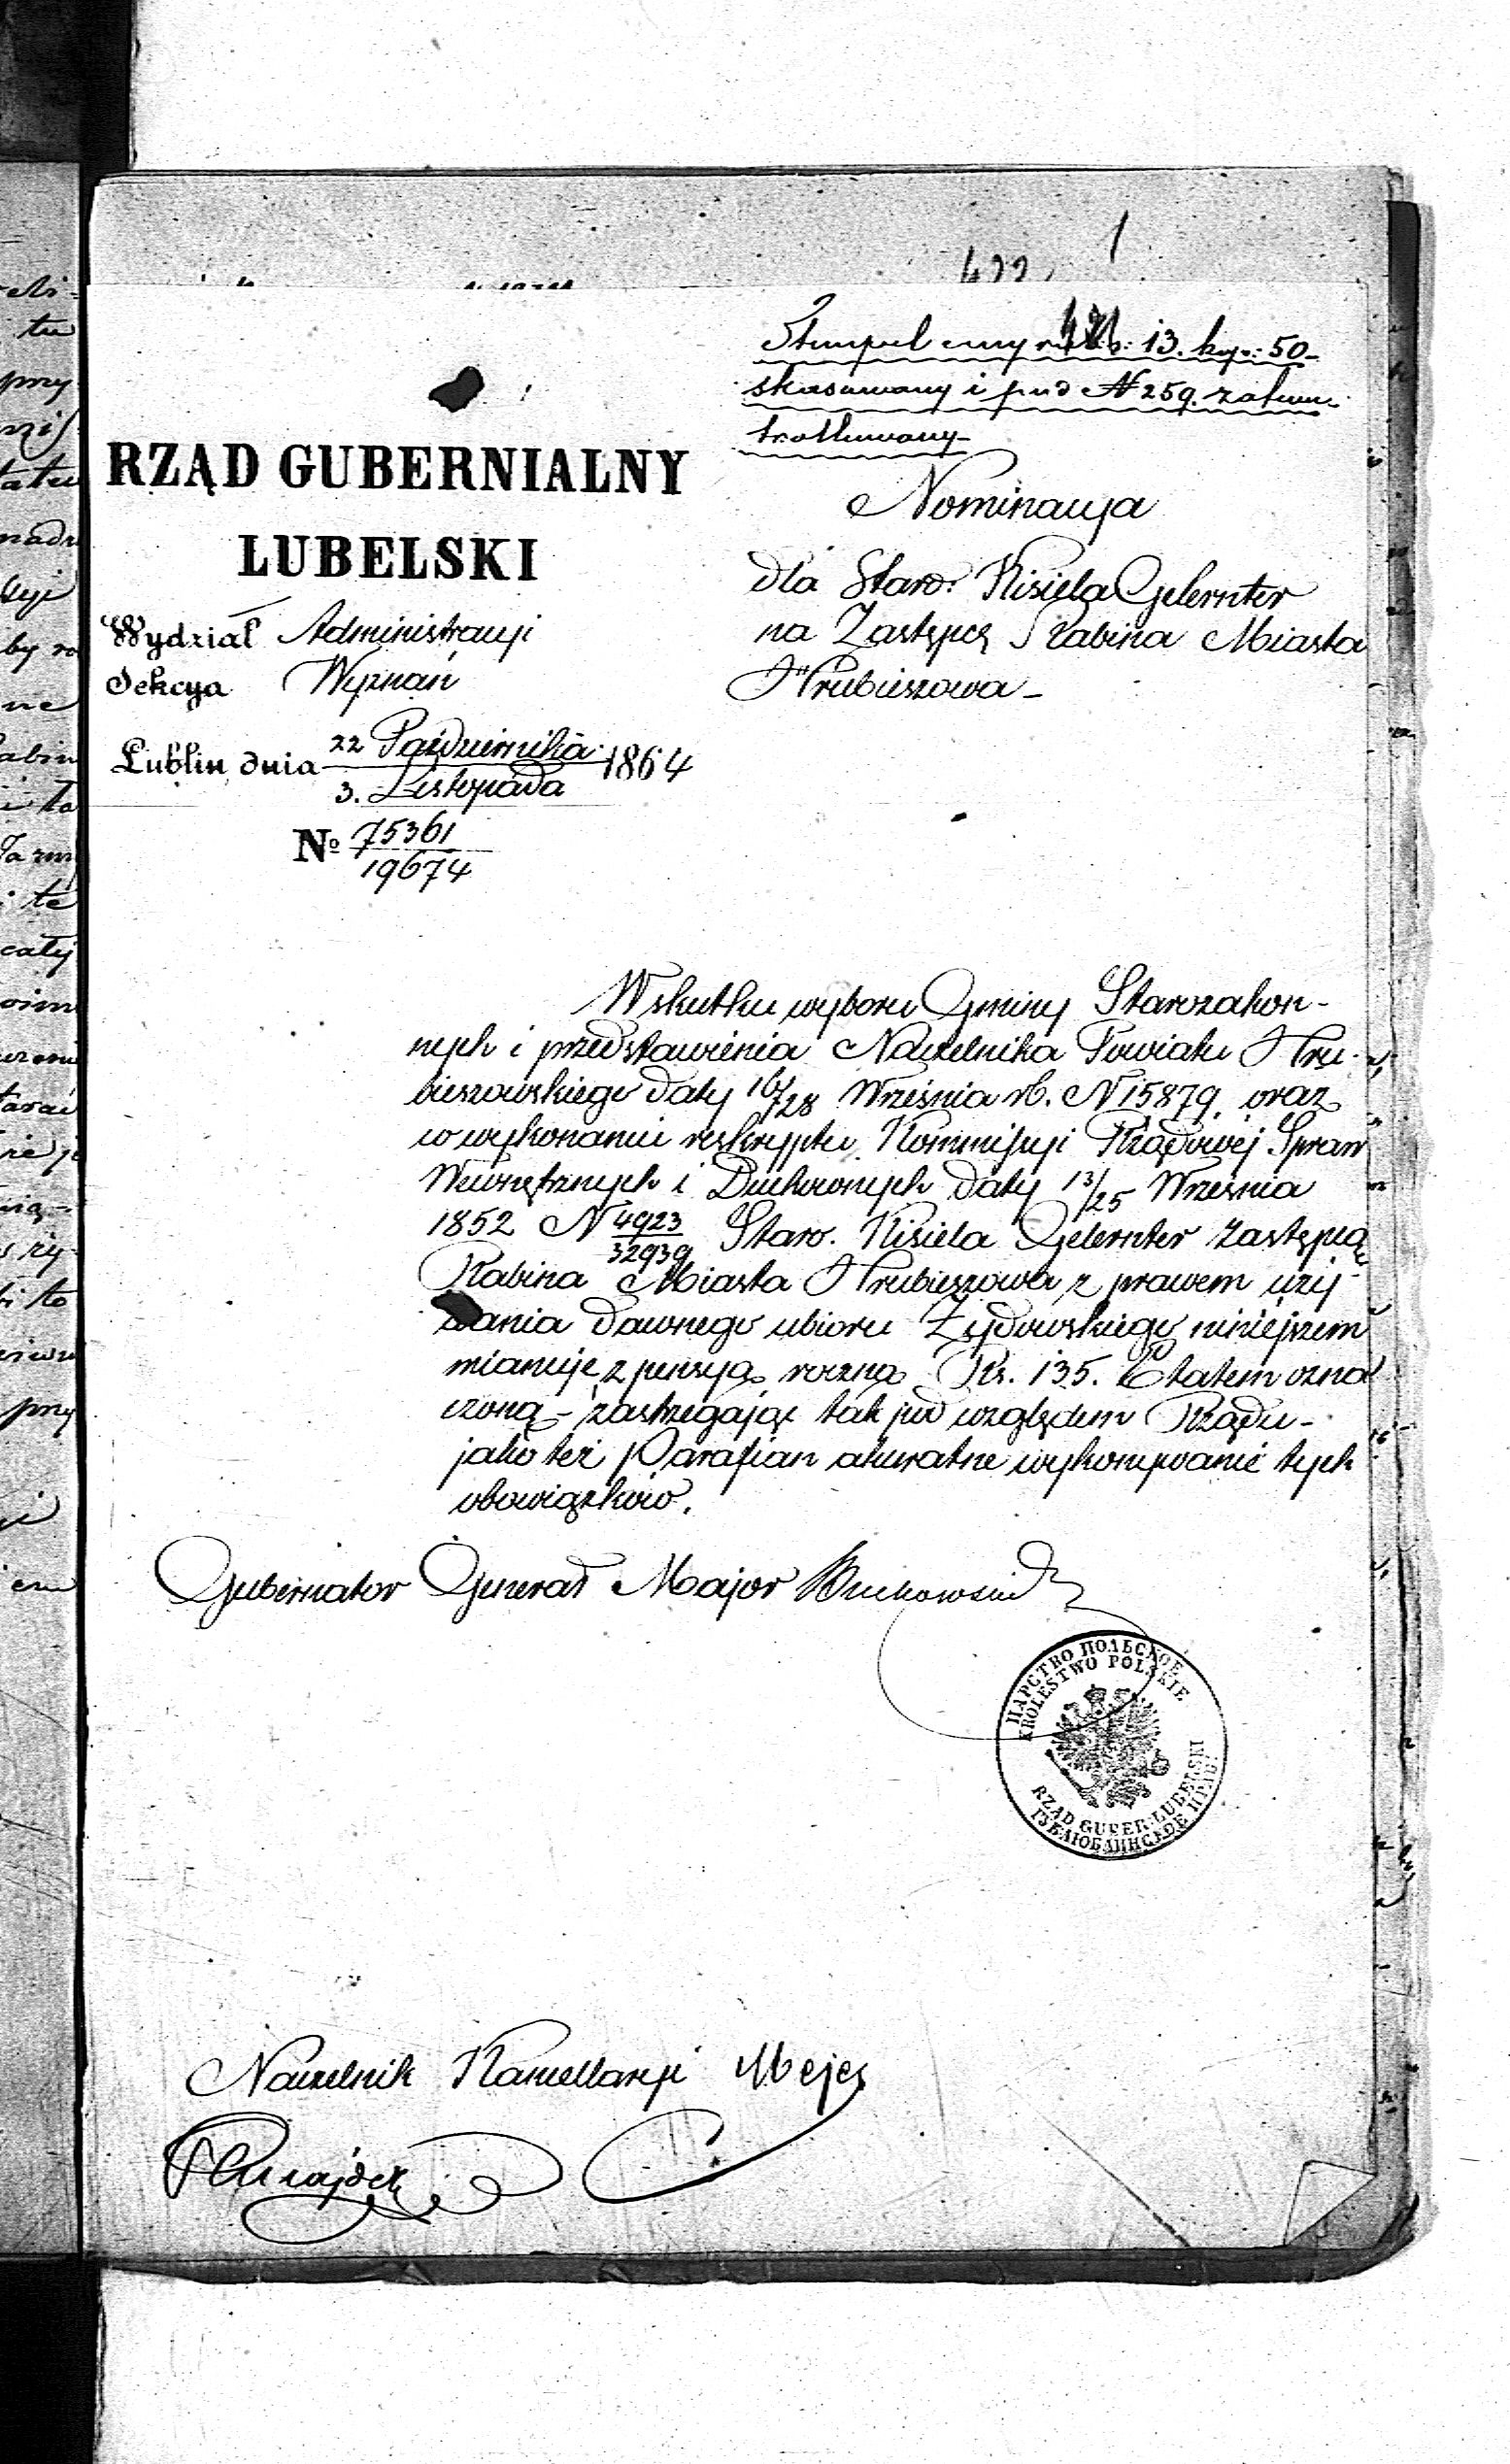 1
499
Stempel ceny rub: 13. kop: 50
skasowany i pod N 259. zakon-
trollowany
RZĄD GUBERNIALNY
LUBELSKI
Wydział Administracyi
Sekcya Wyznań
Lublin dnia 22 Października / 3. Listopada 1864
No 75361 / 19674
Nominacya
dla Staro: Kisiela Gelernter
na Zastępcę Rabina Miasta
Hrubieszowa
Wskutku wyboru Gminy Starozakon-
nych i przedstawienia Naczelnika Powiatu Hru-
bieszowskiego daty 16/28 Września rb. N 15879. oraz
w wykonaniu reskryptu Kommissyi Rządowej Spraw
Wewnętrznych i Duchownych daty 13/25 Września
1852 N 4923/32939 Staro. Kisiela Gelernter zastępcą
Rabina Miasta Hrubieszowa, z prawem uży-
wania dawnego ubioru Żydowskiego niniejszem
mianuje z pensyą roczną Rs. 135. Etatem ozna
czoną - zastrzegając tak pod względem Rządu -
jako też Parafian akuratne wykonywanie tych
obowiązków.
Gubernator Generał Major
ЦАРСТВО ПОЛЬСКОЕ
KROLESTWO POLSKIE
RZĄD GUBER. LUBELSKI
ГУБ. ЛЮБЛИНСКОЕ ПРАВ.
Naczelnik Kancellaryi